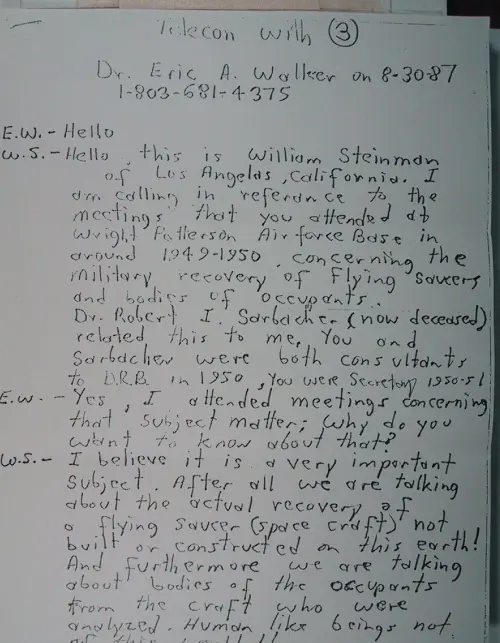 Telecon with ③
Dr. Eric A. Walker on 8-30-87
1-803-681-4375
E.W. - Hello
W.S. - Hello, this is William Steinman
of Los Angelas, California. I
am calling in referance to the
meetings that you attended at
Wright Patterson Air force Base in
around 1949-1950, concerning the
military recovery of Flying Saucers
and bodies of occupants.
Dr. Robert I. Sarbacher (now deceased)
related this to me. You and
Sarbacher were both consultants
to D.R.B. in 1950, you were Secretary 1950-51
E.W. - Yes, I attended meetings concerning
that subject matter; why do you
want to know about that?
W.S. - I believe it is a very important
subject. After all we are talking
about the actual recovery of
a flying saucer (space craft) not
built or constructed on this earth!
And furthermore we are talking
about bodies of the occupants
from the craft who were
analyzed. Human like beings not
of this